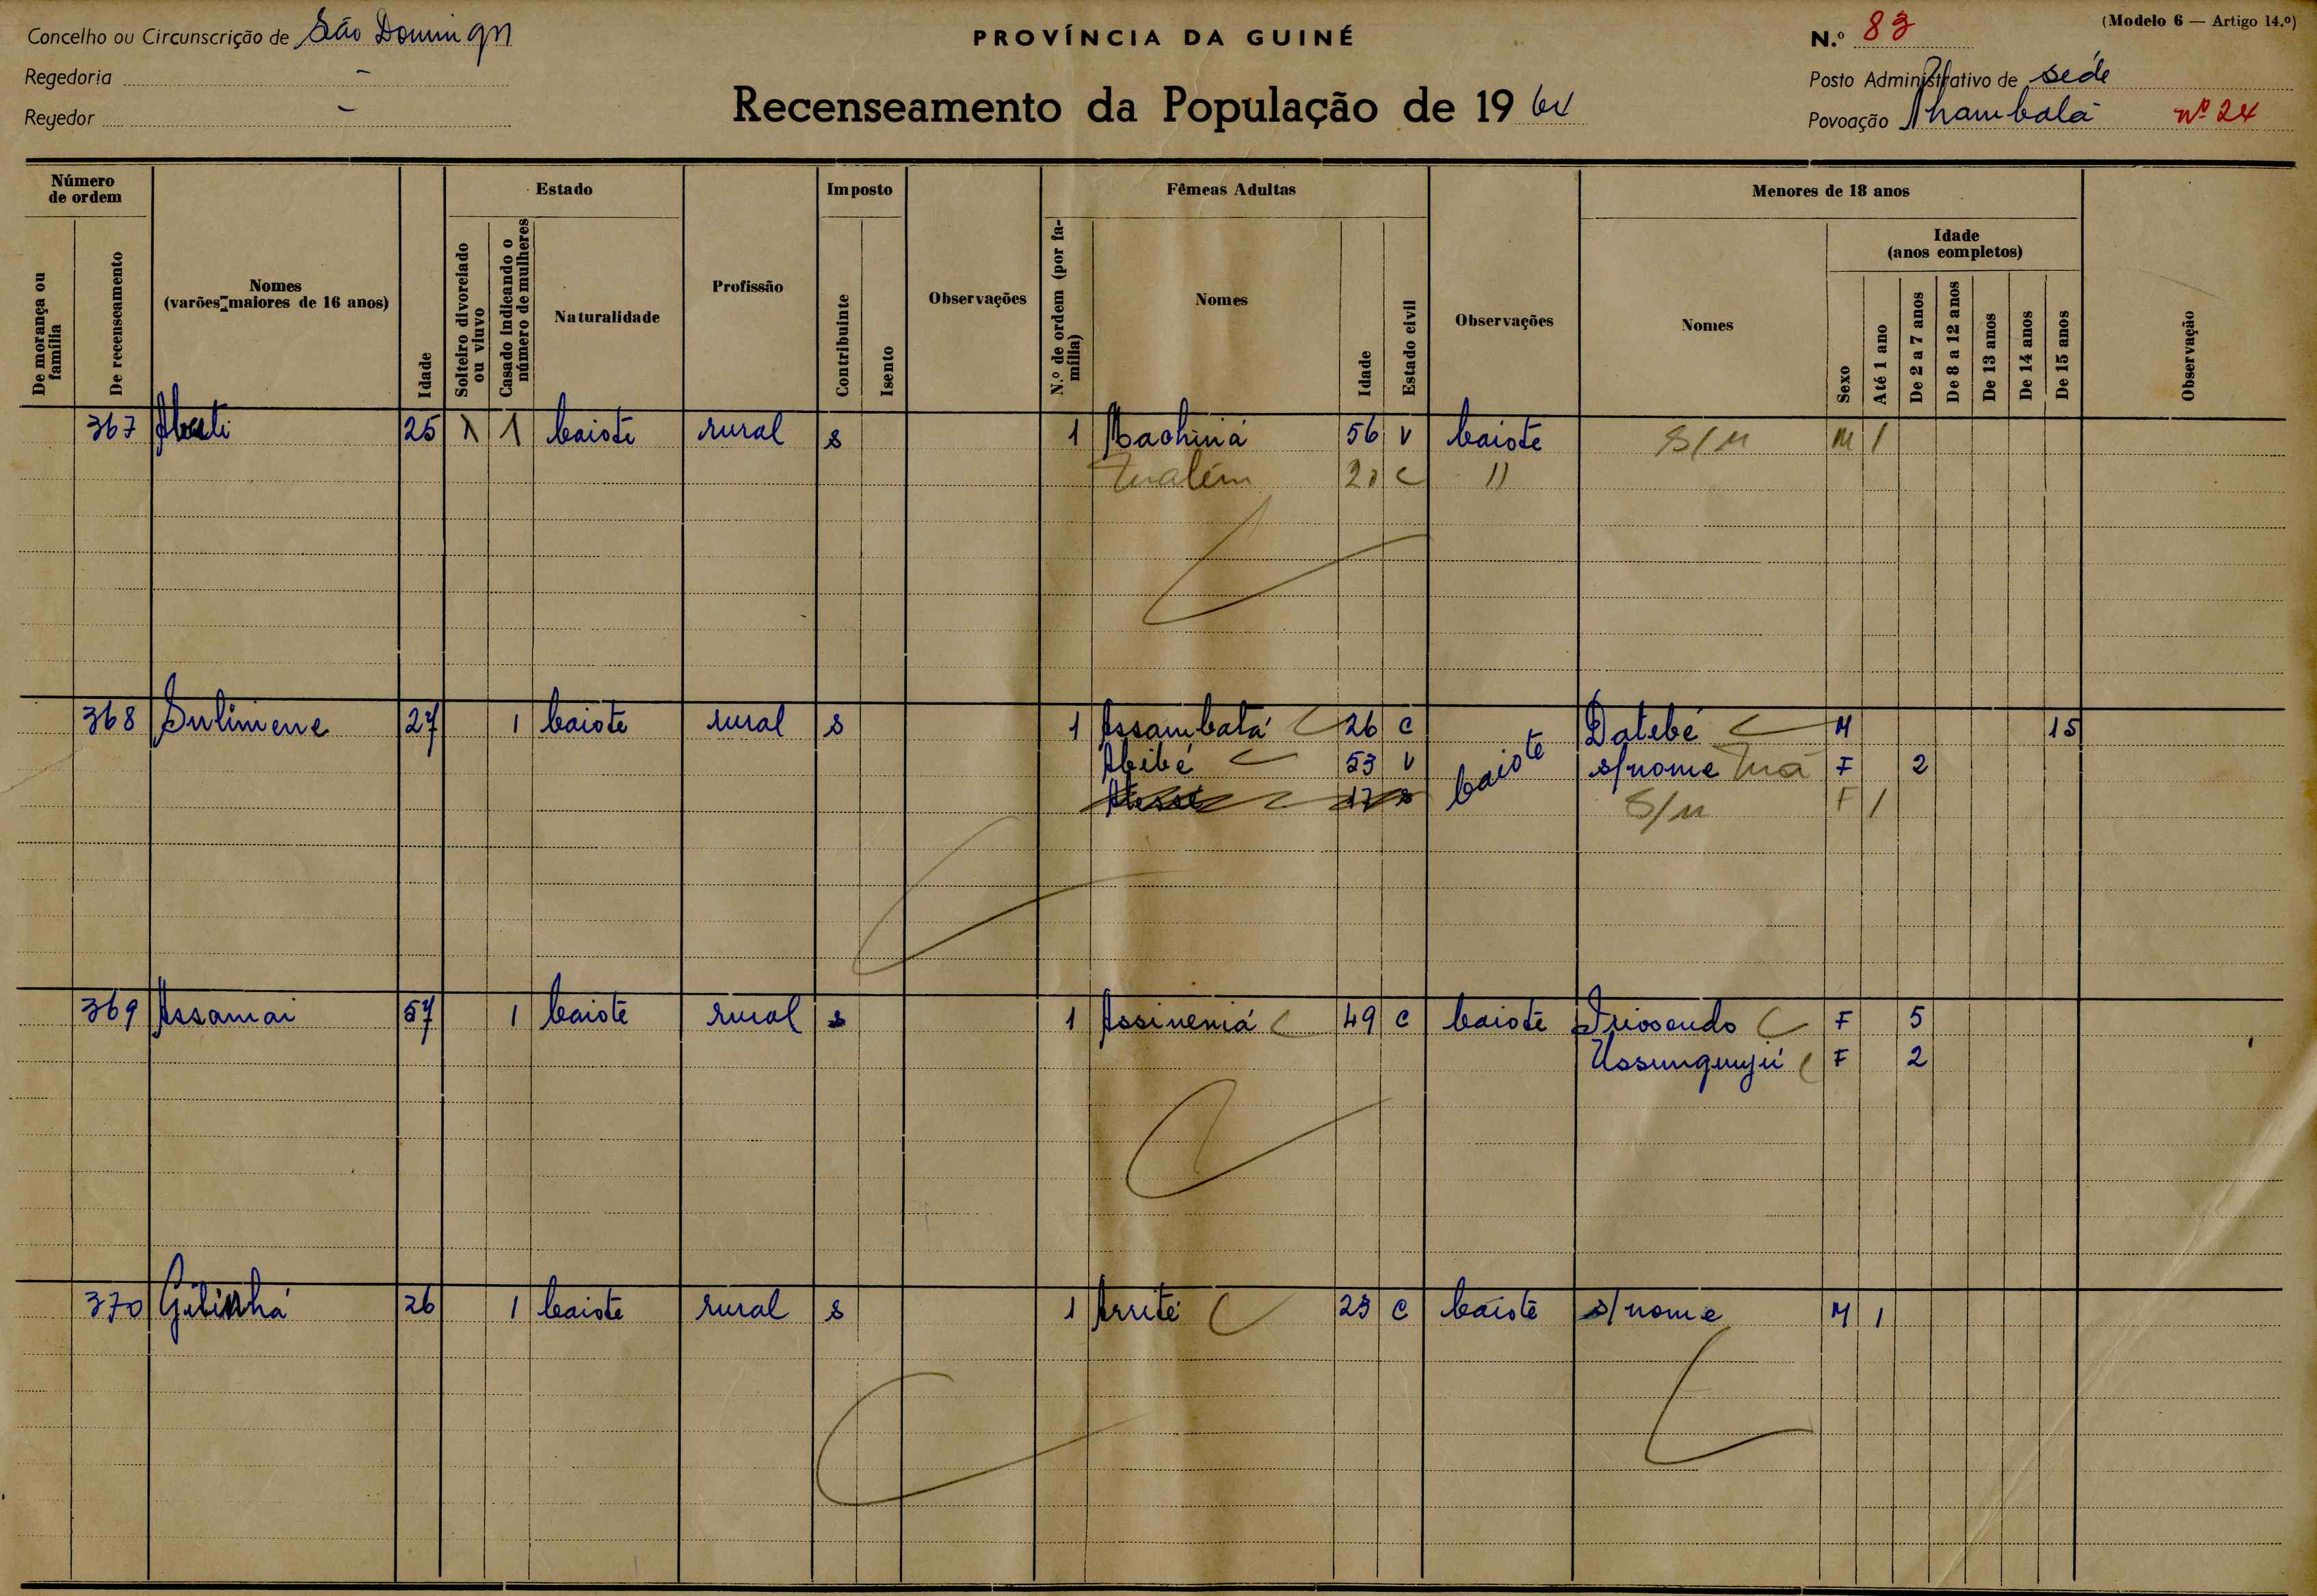 Concelho ou Circunscrição de São Domingos
PROVÍNCIA DA GUINÉ
N.º 83
(Modelo 6 — Artigo 14.º)
Regedoria -
Posto Administrativo de sede
Regedor -
Recenseamento da População de 19
Povoação nº 24
Número de ordem
De morança ou família
De recenseamento
Nomes (varões maiores de 16 anos)
Idade
Estado
Solteiro divorciado ou viuvo
Casado indicando o número de mulheres
Naturalidade
Profissão
Imposto
Contribuinte
Isento
Observações
Fêmeas Adultas
N.º de ordem (por família)
Nomes
Idade
Estado civil
Observações
Menores de 18 anos
Nomes
Sexo
Idade (anos completos)
Até 1 ano
De 2 a 7 anos
De 8 a 12 anos
De 13 anos
De 14 anos
De 15 anos
Observação
367 25 1 baiote rural s 1 56 V baiote S/N M 1
C "
368 Sulimene 27 1 baiote rural s 1 Assambatá 26 C Datebé M 15
Abibé 53 V baiote s/nome F 2
S/N F 1
369 Assamai 57 1 baiote rural s 1 Assinemá 49 C baiote F 5
F 2
370 26 1 baiote rural s 1 Arrité 23 C baiote s/nome M 1